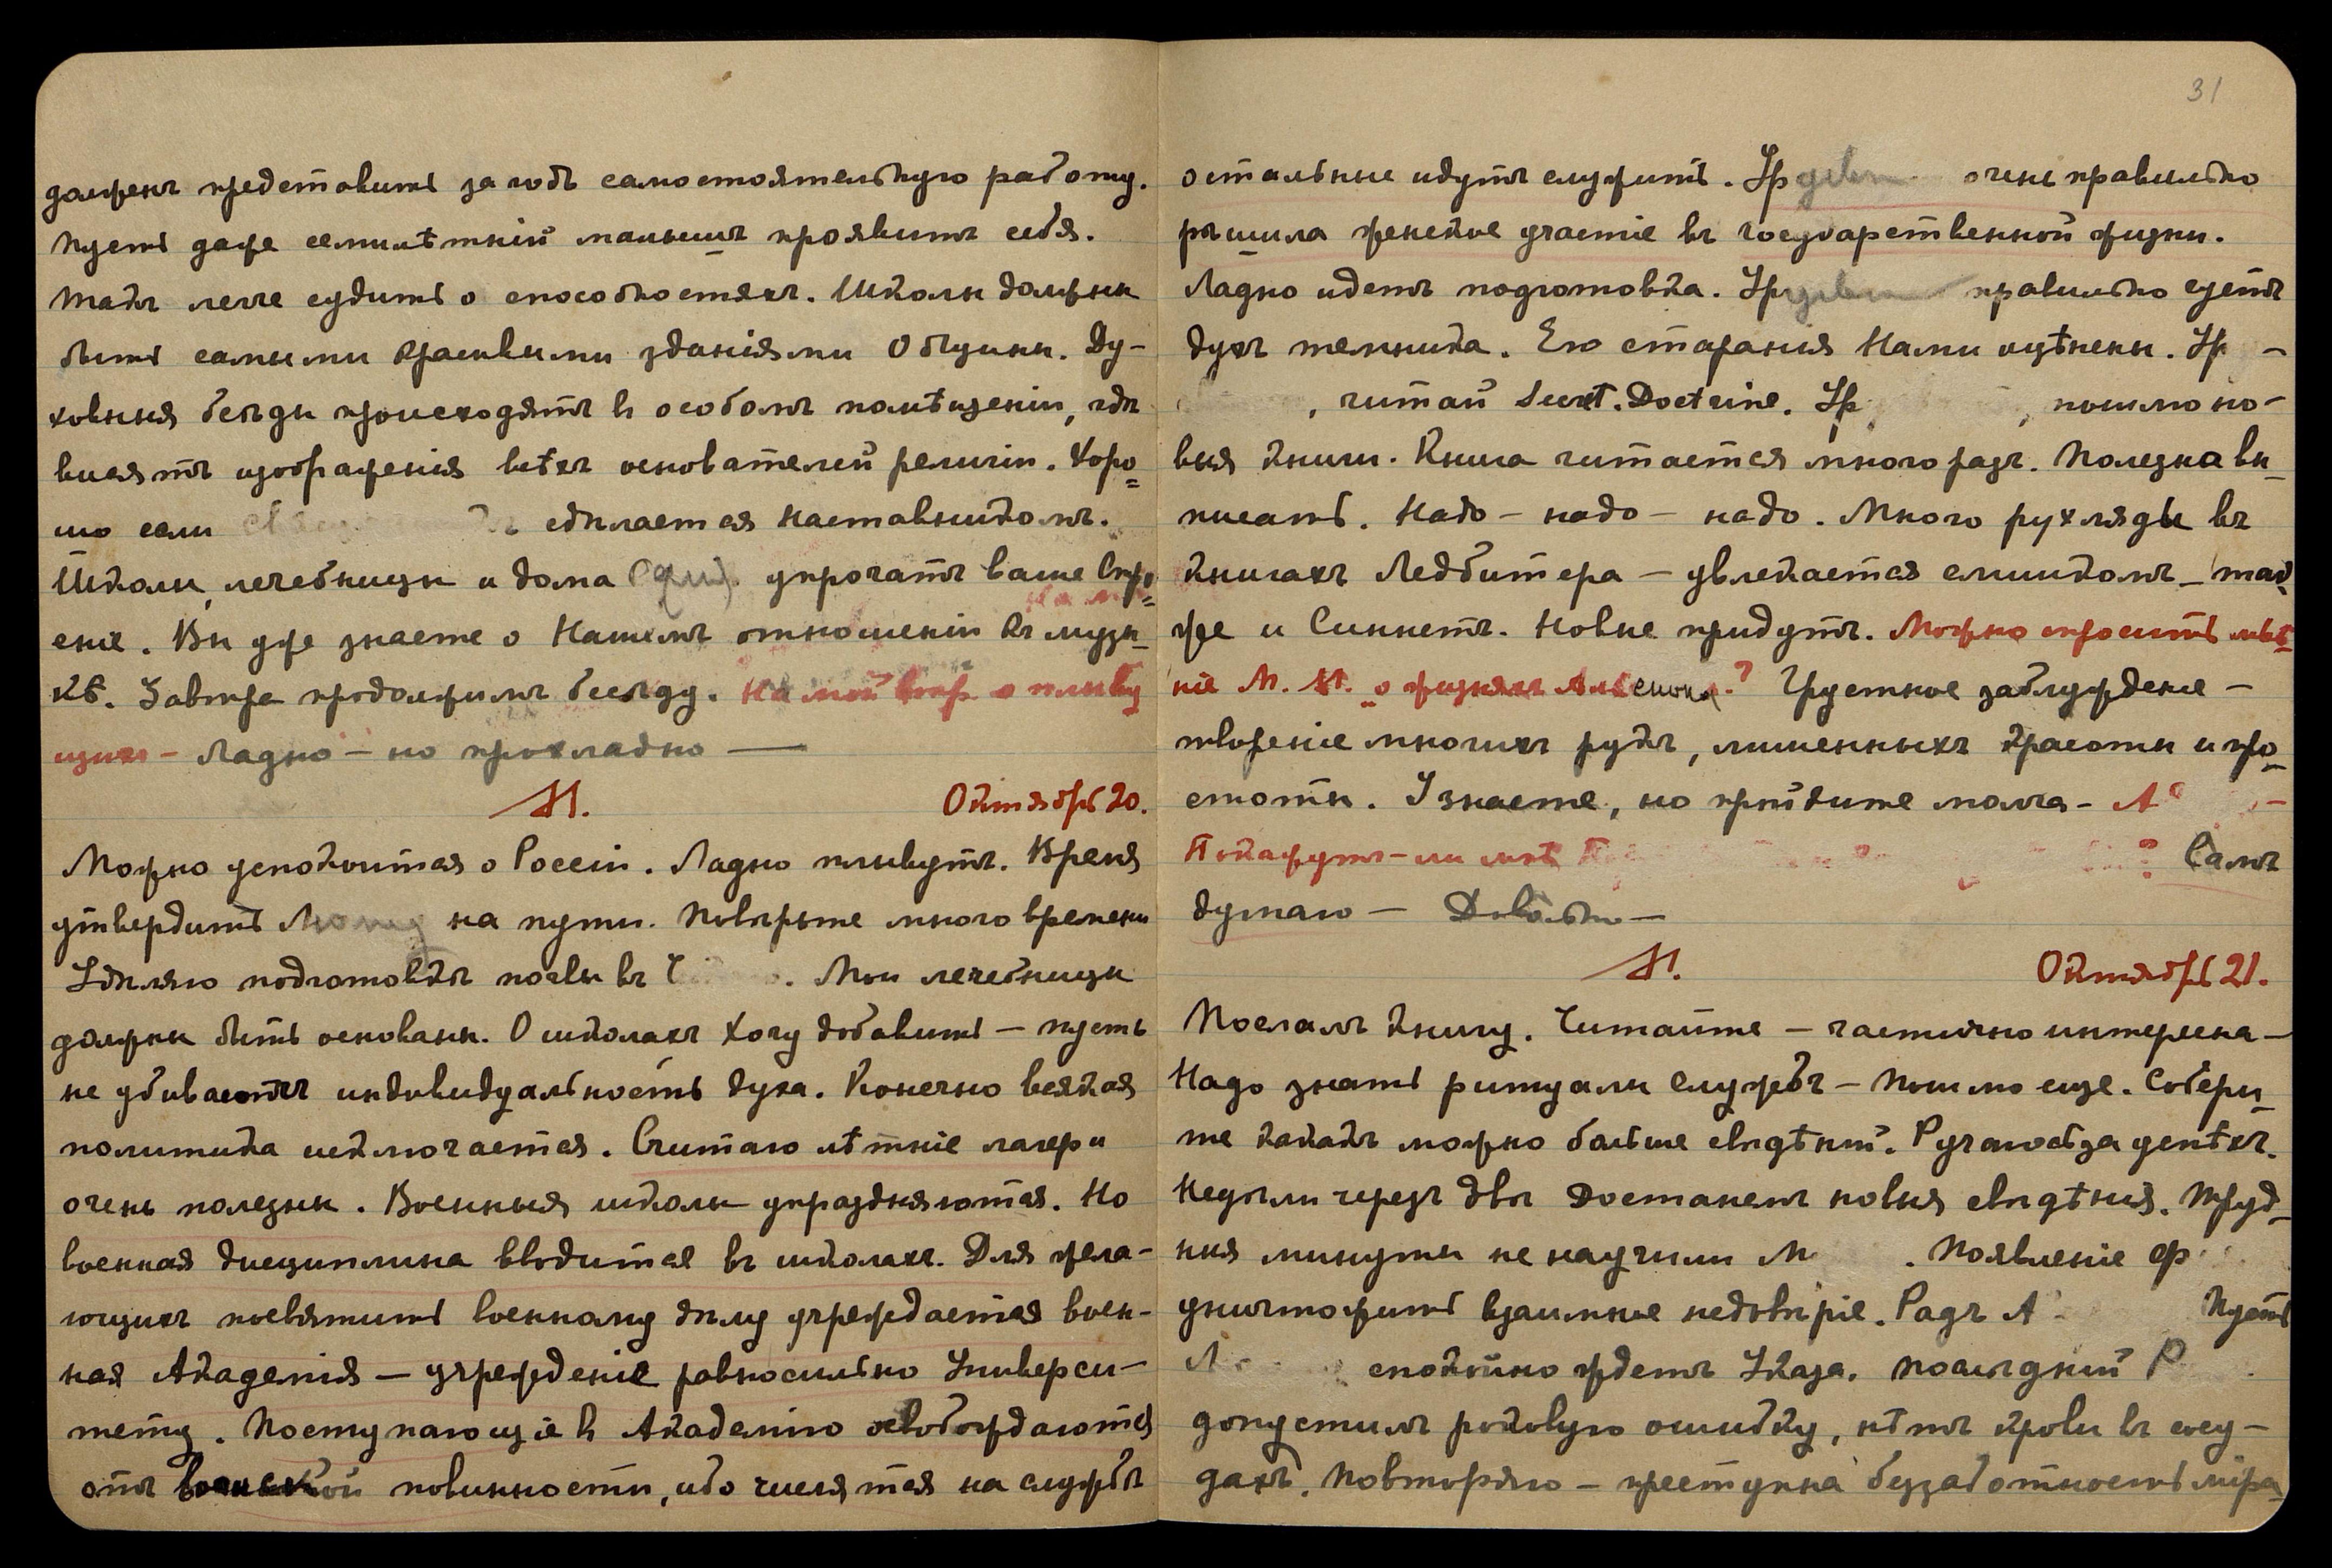 долженъ представить за годъ самостоятельную работу.
Пусть даже семилѣтній малышъ проявитъ себя.
Такъ легче судить о способностяхъ. Школы должны
быть самыми красивыми зданіями Общины. Ду-
ховныя бесѣды происходятъ въ особомъ помѣщеніи, гдѣ
висятъ изображенія всѣхъ основателей религіи. Хоро=
шо если сдѣлается наставникомъ.
Школы, лечебницы и дома упрочатъ ваше Стро=
еніе. Вы уже знаете о Нашемъ отношеніи къ музы-
кѣ. Завтра продолжимъ бесѣду. На мой вопр. о плыву
щихъ - Ладно - но прохладно —
М. Октябрь 20.
Можно успокоиться о Россіи. Ладно плывутъ. Время
утвердить на пути. Повѣрьте много времени
Удѣляю подготовкѣ почвы въ . Мои лечебницы
должны быть основаны. О школахъ хочу добавить - пусть
не убиваютъ индивидуальность духа. Конечно всякая
политика исключается. Считаю лѣтніе лагери
очень полезны. Военныя школы упраздняются. Но
военная дисциплина вводится въ школахъ. Для жела-
ющихъ посвятить военному дѣлу учреждается воен-
ная Академія — учрежденіе равносильно Универси-
тету. Поступающіе въ Академію освобождаются
отъ воинской повинности, ибо числятся на службѣ
31
остальные идутъ служить. Ур очень правильно
рѣшила женское участіе въ государственной жизни.
Ладно идетъ подготовка. правильно
духъ темника. Его старанія Нами оцѣнены. Ур -
, читай Secret. Doctrine. Ур , пошлю но-
выя книги. Книга читается много разъ. Полезна вы-
писать. Надо - надо - надо. Много рухляди въ
книгахъ Ледбитера - увлекается слишкомъ - так
же и Синнетъ. Новые придутъ. Можно спросить мнѣ-
ніе М. М. о жизняхъ Альсіона? Грустное заблужденіе -
твореніе многихъ рукъ, лишенныхъ красоты и про-
стоты. Узнаете, но пройдите молча - А
Покажутъ-ли мнѣ ? Самъ
думаю — Довольно —
М. Октябрь 21.
Послалъ книгу. Читайте - частично интересна -
Надо знать ритуалы службъ - Пошлю еще. Собери-
те какъ можно больше свѣдѣній. Ручаюсь за успѣхъ.
Недѣли черезъ двѣ достанемъ новыя свѣдѣнія. Труд-
ныя минуты не научили М . Появленіе Ф
уничтожитъ взаимное недовѣріе. Радъ А Пусть
спокойно ждетъ Указа. Послѣдній Р
допустилъ роковую ошибку, нѣтъ крови въ сосу-
дахъ. Повторяю - преступна беззаботность міра